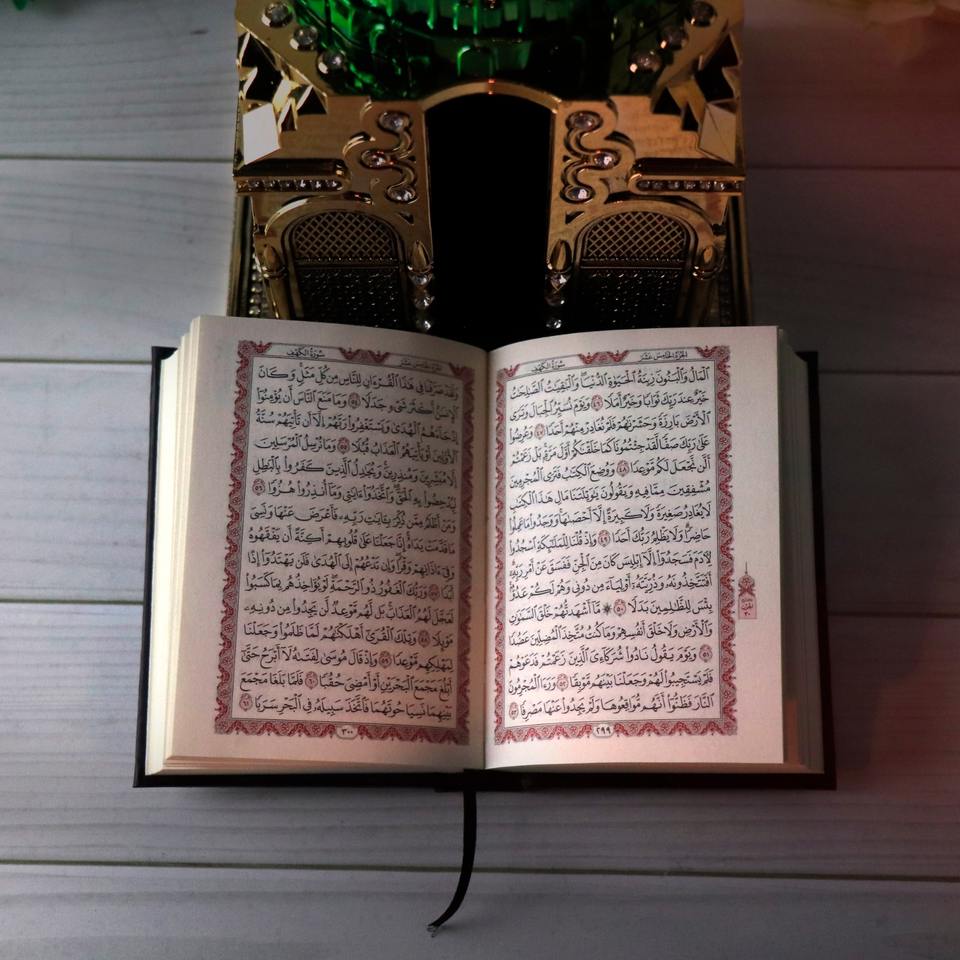 سُورَةُ الكَهْفِ
الجُزْءُ الخَامِسَ عَشَرَ
ٱلْمَالُ وَٱلْبَنُونَ زِينَةُ ٱلْحَيَوٰةِ ٱلدُّنْيَا ۖ وَٱلْبَٰقِيَٰتُ ٱلصَّٰلِحَٰتُ
خَيْرٌ عِندَ رَبِّكَ ثَوَابًا وَخَيْرٌ أَمَلًا ٤٦ وَيَوْمَ نُسَيِّرُ ٱلْجِبَالَ وَتَرَى
ٱلْأَرْضَ بَارِزَةً وَحَشَرْنَٰهُمْ فَلَمْ نُغَادِرْ مِنْهُمْ أَحَدًا ٤٧ وَعُرِضُوا۟
عَلَىٰ رَبِّكَ صَفًّا لَّقَدْ جِئْتُمُونَا كَمَا خَلَقْنَٰكُمْ أَوَّلَ مَرَّةٍۭ ۚ بَلْ زَعَمْتُمْ
أَلَّن نَّجْعَلَ لَكُم مَّوْعِدًا ٤٨ وَوُضِعَ ٱلْكِتَٰبُ فَتَرَى ٱلْمُجْرِمِينَ
مُشْفِقِينَ مِمَّا فِيهِ وَيَقُولُونَ يَٰوَيْلَتَنَا مَالِ هَٰذَا ٱلْكِتَٰبِ
لَا يُغَادِرُ صَغِيرَةً وَلَا كَبِيرَةً إِلَّآ أَحْصَىٰهَا ۚ وَوَجَدُوا۟ مَا عَمِلُوا۟
حَاضِرًا ۗ وَلَا يَظْلِمُ رَبُّكَ أَحَدًا ٤٩ وَإِذْ قُلْنَا لِلْمَلَٰٓئِكَةِ ٱسْجُدُوا۟
لِءَادَمَ فَسَجَدُوٓا۟ إِلَّآ إِبْلِيسَ كَانَ مِنَ ٱلْجِنِّ فَفَسَقَ عَنْ أَمْرِ رَبِّهِۦٓ ۗ
أَفَتَتَّخِذُونَهُۥ وَذُرِّيَّتَهُۥٓ أَوْلِيَآءَ مِن دُونِى وَهُمْ لَكُمْ عَدُوٌّۢ ۚ
بِئْسَ لِلظَّٰلِمِينَ بَدَلًا ٥٠ ۞ مَّآ أَشْهَدتُّهُمْ خَلْقَ ٱلسَّمَٰوَٰتِ
وَٱلْأَرْضِ وَلَا خَلْقَ أَنفُسِهِمْ وَمَا كُنتُ مُتَّخِذَ ٱلْمُضِلِّينَ عَضُدًا
٥١ وَيَوْمَ يَقُولُ نَادُوا۟ شُرَكَآءِىَ ٱلَّذِينَ زَعَمْتُمْ فَدَعَوْهُمْ
فَلَمْ يَسْتَجِيبُوا۟ لَهُمْ وَجَعَلْنَا بَيْنَهُم مَّوْبِقًا ٥٢ وَرَءَا ٱلْمُجْرِمُونَ
ٱلنَّارَ فَظَنُّوٓا۟ أَنَّهُم مُّوَاقِعُوهَا وَلَمْ يَجِدُوا۟ عَنْهَا مَصْرِفًا ٥٣
٢٩٩
الحزب
٣٠
الجُزْءُ الخَامِسَ عَشَرَ
سُورَةُ الكَهْفِ
وَلَقَدْ صَرَّفْنَا فِى هَٰذَا ٱلْقُرْءَانِ لِلنَّاسِ مِن كُلِّ مَثَلٍ ۚ وَكَانَ
ٱلْإِنسَٰنُ أَكْثَرَ شَىْءٍ جَدَلًا ٥٤ وَمَا مَنَعَ ٱلنَّاسَ أَن يُؤْمِنُوٓا۟
إِذْ جَآءَهُمُ ٱلْهُدَىٰ وَيَسْتَغْفِرُوا۟ رَبَّهُمْ إِلَّآ أَن تَأْتِيَهُمْ سُنَّةُ
ٱلْأَوَّلِينَ أَوْ يَأْتِيَهُمُ ٱلْعَذَابُ قُبُلًا ٥٥ وَمَا نُرْسِلُ ٱلْمُرْسَلِينَ
إِلَّا مُبَشِّرِينَ وَمُنذِرِينَ ۚ وَيُجَٰدِلُ ٱلَّذِينَ كَفَرُوا۟ بِٱلْبَٰطِلِ
لِيُدْحِضُوا۟ بِهِ ٱلْحَقَّ ۖ وَٱتَّخَذُوٓا۟ ءَايَٰتِى وَمَآ أُنذِرُوا۟ هُزُوًا ٥٦
وَمَنْ أَظْلَمُ مِمَّن ذُكِّرَ بِـَٔايَٰتِ رَبِّهِۦ فَأَعْرَضَ عَنْهَا وَنَسِىَ
مَا قَدَّمَتْ يَدَاهُ ۚ إِنَّا جَعَلْنَا عَلَىٰ قُلُوبِهِمْ أَكِنَّةً أَن يَفْقَهُوهُ
وَفِىٓ ءَاذَانِهِمْ وَقْرًا ۖ وَإِن تَدْعُهُمْ إِلَى ٱلْهُدَىٰ فَلَن يَهْتَدُوٓا۟ إِذًا
أَبَدًا ٥٧ وَرَبُّكَ ٱلْغَفُورُ ذُو ٱلرَّحْمَةِ ۖ لَوْ يُؤَاخِذُهُم بِمَا كَسَبُوا۟
لَعَجَّلَ لَهُمُ ٱلْعَذَابَ ۚ بَل لَّهُم مَّوْعِدٌ لَّن يَجِدُوا۟ مِن دُونِهِۦ
مَوْئِلًا ٥٨ وَتِلْكَ ٱلْقُرَىٰٓ أَهْلَكْنَٰهُمْ لَمَّا ظَلَمُوا۟ وَجَعَلْنَا
لِمَهْلِكِهِم مَّوْعِدًا ٥٩ وَإِذْ قَالَ مُوسَىٰ لِفَتَىٰهُ لَآ أَبْرَحُ حَتَّىٰٓ
أَبْلُغَ مَجْمَعَ ٱلْبَحْرَيْنِ أَوْ أَمْضِىَ حُقُبًا ٦٠ فَلَمَّا بَلَغَا مَجْمَعَ
بَيْنِهِمَا نَسِيَا حُوتَهُمَا فَٱتَّخَذَ سَبِيلَهُۥ فِى ٱلْبَحْرِ سَرَبًا ٦١
٣٠٠